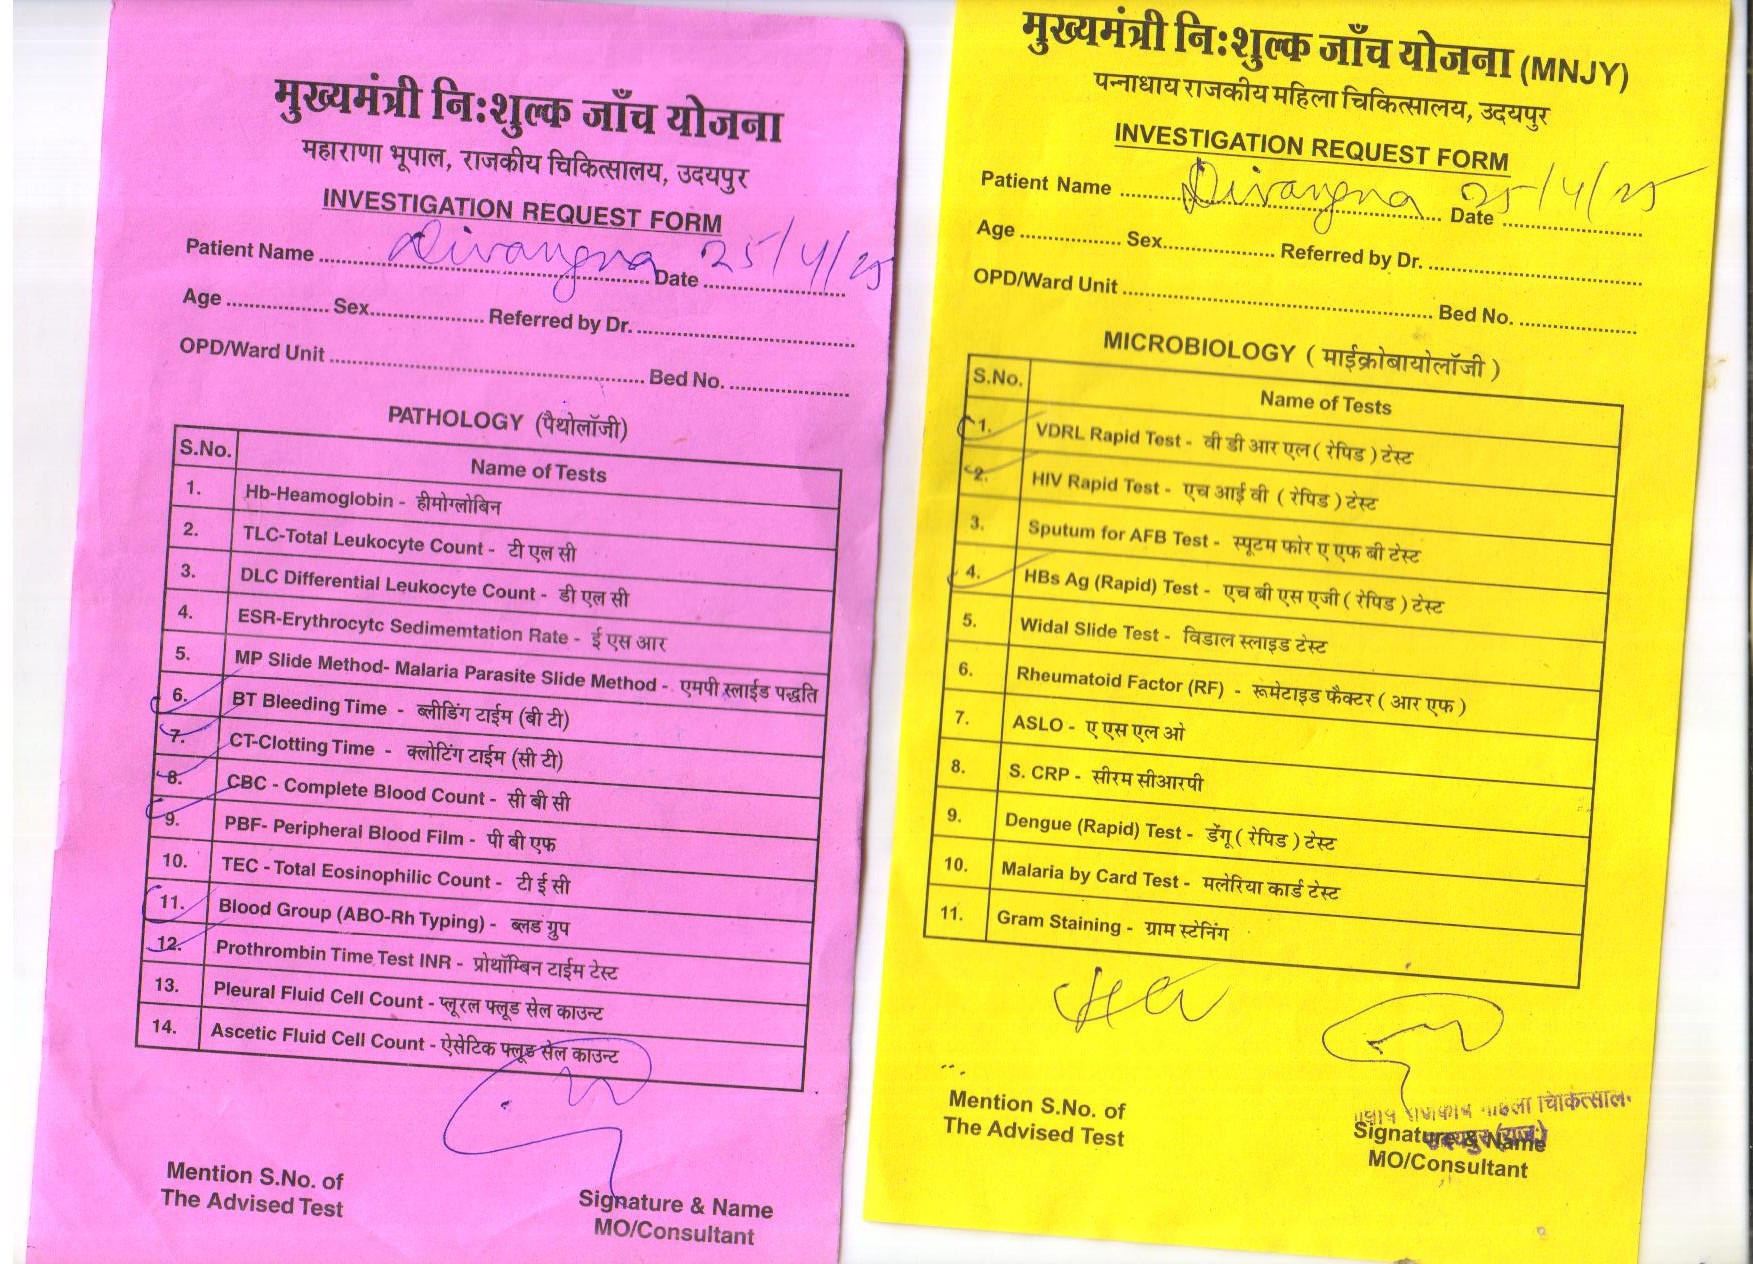 मुख्यमंत्री नि:शुल्क जाँच योजना
महाराणा भूपाल, राजकीय चिकित्सालय, उदयपुर
INVESTIGATION REQUEST FORM
Patient Name Divangna Date 25/4/25
Age Sex Referred by Dr.
OPD/Ward Unit Bed No.
PATHOLOGY (पैथोलॉजी)
S.No. Name of Tests
1. Hb-Heamoglobin - हीमोग्लोबिन
2. TLC-Total Leukocyte Count - टी एल सी
3. DLC Differential Leukocyte Count - डी एल सी
4. ESR-Erythrocytc Sedimemtation Rate - ई एस आर
5. MP Slide Method- Malaria Parasite Slide Method - एमपी स्लाईड पद्धति
6. BT Bleeding Time - ब्लीडिंग टाईम (बी टी)
7. CT-Clotting Time - क्लोटिंग टाईम (सी टी)
8. CBC - Complete Blood Count - सी बी सी
9. PBF- Peripheral Blood Film - पी बी एफ
10. TEC - Total Eosinophilic Count - टी ई सी
11. Blood Group (ABO-Rh Typing) - ब्लड ग्रुप
12. Prothrombin Time Test INR - प्रोथॉम्बिन टाईम टेस्ट
13. Pleural Fluid Cell Count - प्लूरल फ्लूड सेल काउन्ट
14. Ascetic Fluid Cell Count - ऐसेटिक फ्लूड सेल काउन्ट
Mention S.No. of
The Advised Test
Signature & Name
MO/Consultant
मुख्यमंत्री नि:शुल्क जाँच योजना (MNJY)
पन्नाधाय राजकीय महिला चिकित्सालय, उदयपुर
INVESTIGATION REQUEST FORM
Patient Name Divangna Date 25/4/25
Age Sex Referred by Dr.
OPD/Ward Unit Bed No.
MICROBIOLOGY ( माईक्रोबायोलॉजी )
S.No. Name of Tests
1. VDRL Rapid Test - वी डी आर एल ( रेपिड ) टेस्ट
2. HIV Rapid Test - एच आई वी ( रेपिड ) टेस्ट
3. Sputum for AFB Test - स्पूटम फोर ए एफ बी टेस्ट
4. HBs Ag (Rapid) Test - एच बी एस एजी ( रेपिड ) टेस्ट
5. Widal Slide Test - विडाल स्लाइड टेस्ट
6. Rheumatoid Factor (RF) - रूमेटाइड फैक्टर ( आर एफ )
7. ASLO - ए एस एल ओ
8. S. CRP - सीरम सीआरपी
9. Dengue (Rapid) Test - डेंगू ( रेपिड ) टेस्ट
10. Malaria by Card Test - मलेरिया कार्ड टेस्ट
11. Gram Staining - ग्राम स्टेनिंग
Mention S.No. of
The Advised Test
Signature & Name
MO/Consultant